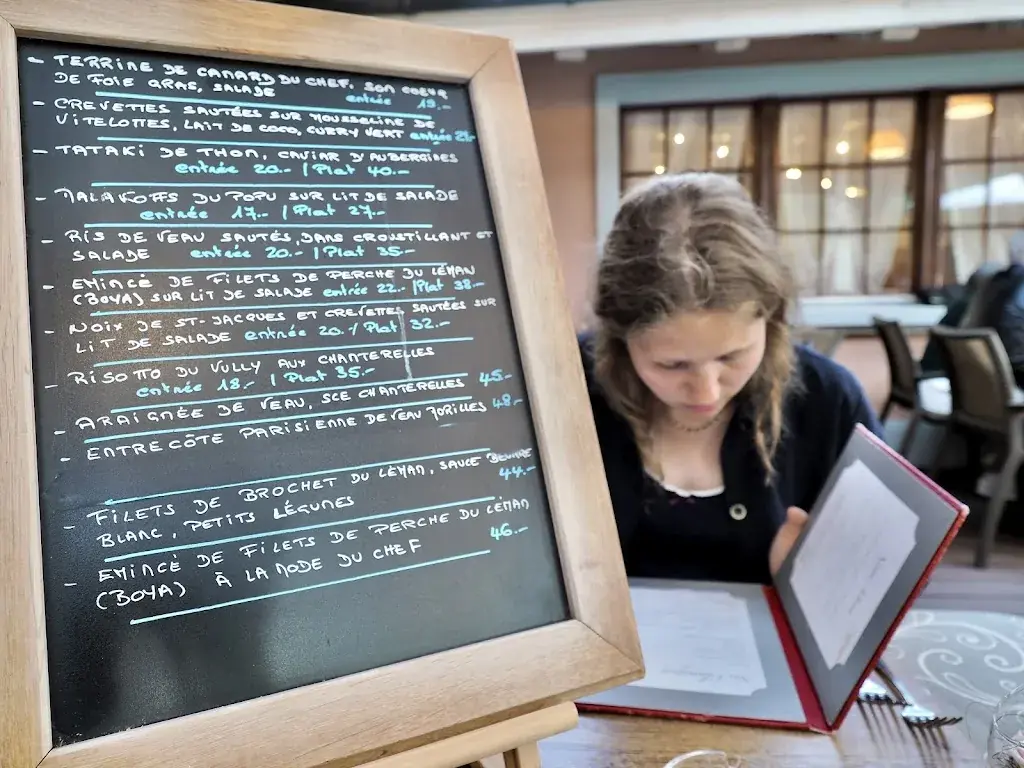 - TERRINE DE CANARD DU CHEF, SON COEUR
DE FOIE GRAS, SALADE entrée 19.-
- CREVETTES SAUTÉES SUR MOUSSELINE DE
VITELOTTES, LAIT DE COCO, CURRY VERT entrée
- TATAKI DE THON, CAVIAR D'AUBERGINES
entrée 20.- / Plat 40.-
- MALAKOFFS DU POPU SUR LIT DE SALADE
entrée 17.- / Plat 27.-
- RIS DE VEAU SAUTÉS, DANS CROUSTILLANT ET
SALADE entrée 20.- / Plat 35.-
- EMINCÉ DE FILETS DE PERCHE DU LÉMAN
(BOYA) SUR LIT DE SALADE entrée 22.- / Plat 38.-
- NOIX DE ST-JACQUES ET CREVETTES SAUTÉES SUR
LIT DE SALADE entrée 20.- / Plat 32.-
- RISOTO DU VULLY AUX CHANTERELLES
entrée 18.- / Plat 35.-
- ARAIGNÉE DE VEAU, SCE CHANTERELLES 45.-
- ENTRECÔTE PARISIENNE DE VEAU MORILLES 48.-
- FILETS DE BROCHET DU LÉMAN, SAUCE BEURRE
BLANC, PETITS LÉGUMES 44.-
- EMINCÉ DE FILETS DE PERCHE DU LÉMAN
(BOYA) À LA MODE DU CHEF 46.-